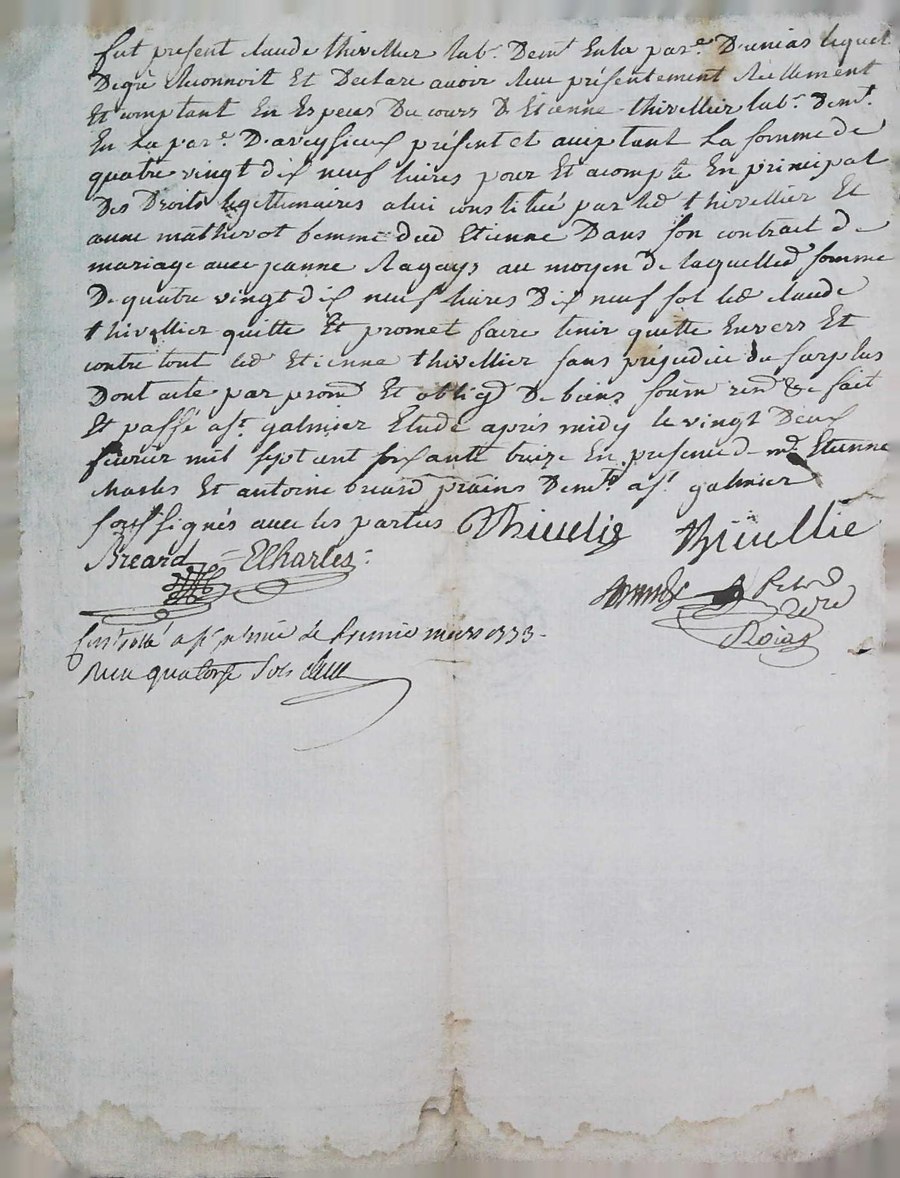 fut present claude thivellier lab.r Dem.t En la par.e D'unias lequel
De gré Reconnoit Et Declare avoir Reçu présentement Réellement
Et comptant En Especes Du cours D'Etienne thivellier lab.r Dem.t
En La par.e D'aveysieux présent et aceptant La somme de
quatre vingt dix neuf livres pour Et acompte En principal
Des Droits legitimaires a lui constitué par led thivellier Et
anne mathevot femme dud Etienne Dans son contrat de
mariage avec jeanne Ragays au moyen de laquelled somme
De quatre vingt dix neuf livres Dix neuf sol led claude
thivellier quitte Et promet faire tenir quitte Envers Et
contre tout led Etienne thivellier sans préjudice du surplus
Dont acte par prom Et oblig De biens soum ren &c fait
Et passé a st galmier Etude après midy le vingt Deux
fevrier mil sept cent soixante treize En presence de m.e Etienne
charles Et antoine breard Dem.t a st galmier
soussignés avec les parties Thivelie Thivellie
Breard = ECharles :
a st le mars 1773
Reçu quatorze sols